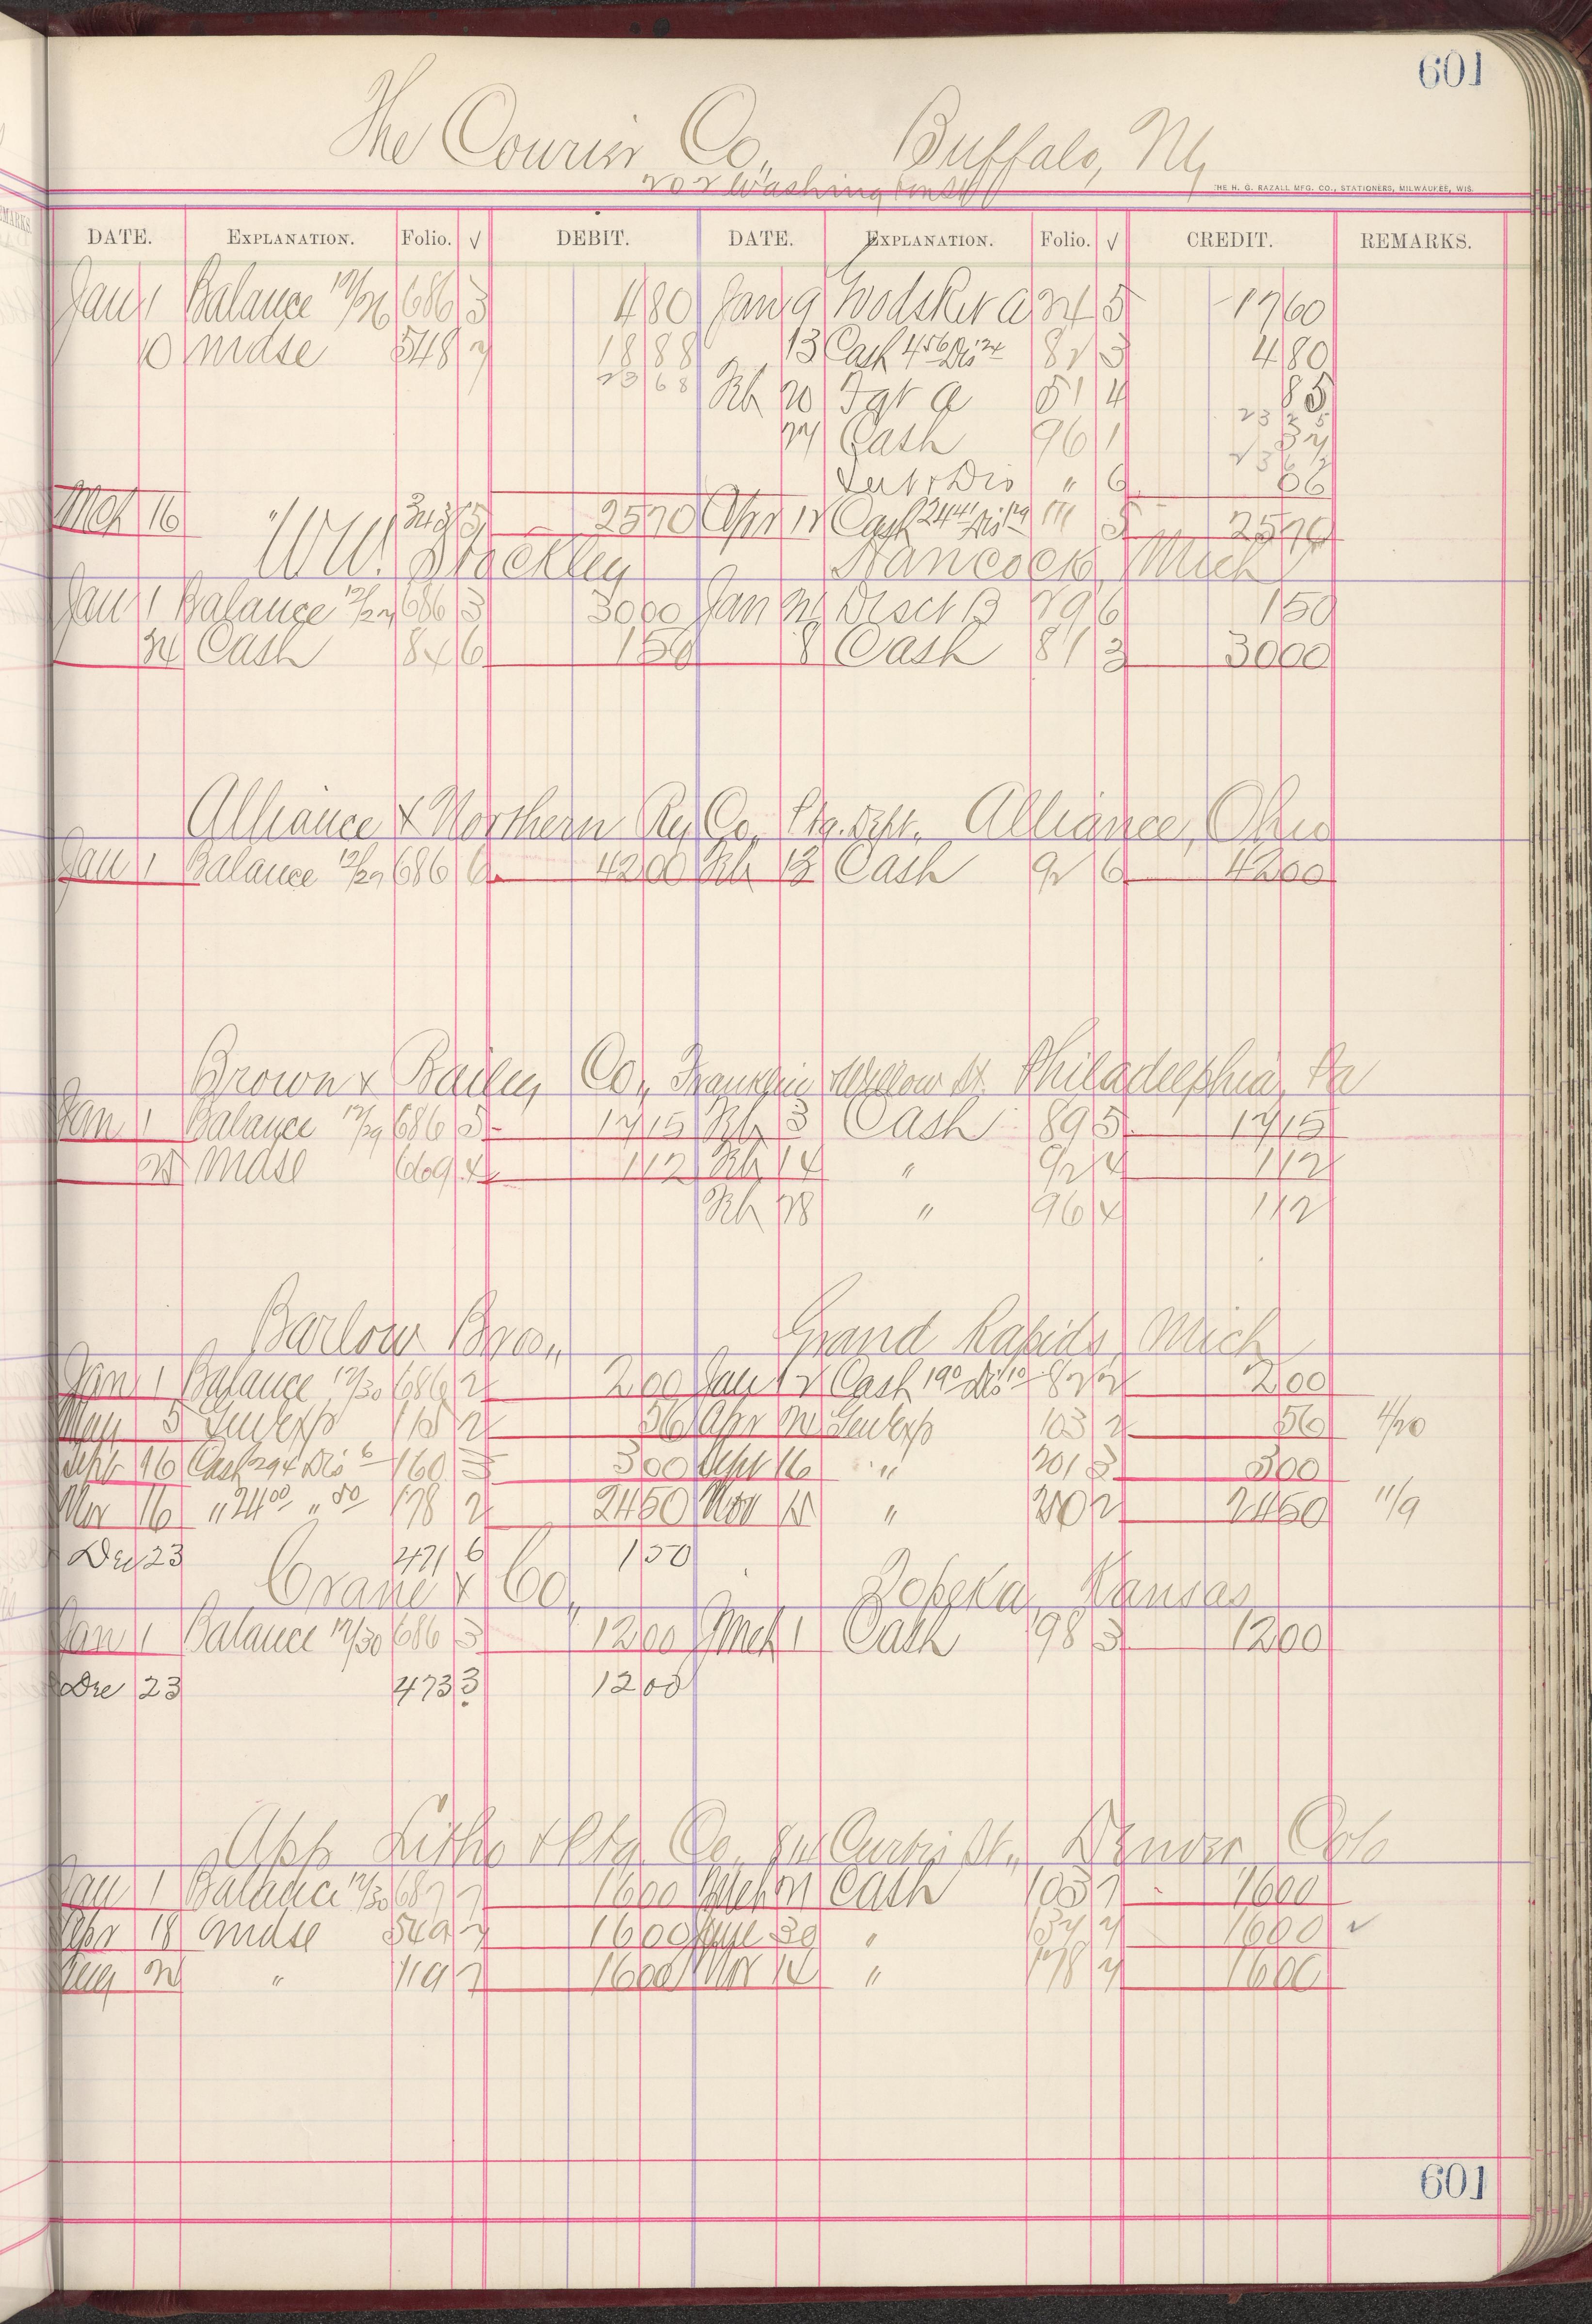 601
The Courier Co., Buffalo, Ny
202 Washington St
THE H. G. RAZALL MFG. CO., STATIONERS, MILWAUKEE, WIS.
DATE. EXPLANATION. Folio. √ DEBIT. DATE. EXPLANATION. Folio. √ CREDIT. REMARKS.
Jan 1 Balance 12/26 686 3 4 80 Jan 9 a 24 5 17 60
10 Mdse 548 7 18 88 13 Cash 4 56 Dis 24 82 3 4 80
23 68 Feb 20 Fgt a 51 4 85
23 25
27 Cash 96 1 37
" 6 06
Mch 16 343 25 70 Apr 12 Cash 24 41 Dis 129 111 5 25 70
W. W. Stockley Hancock, Mich
Jan 1 Balance 12/27 686 3 30 00 Jan 22 Disct B 29 6 1 50
24 Cash 84 6 1 50 8 Cash 81 3 30 00
Alliance & Northern Ry Co. Ptg. Dept. Alliance, Ohio
Jan 1 Balance 12/29 686 6 42 00 Feb 13 Cash 92 6 42 00
Brown & Bailey Co., Franklin & Willow St. Philadelphia, Pa
Jan 1 Balance 12/29 686 5 17 15 Feb 3 Cash 89 5 17 15
28 Mdse 669 4 1 12 Feb 14 " 92 4 1 12
Feb 28 " 96 4 1 12
Barlow Bros., Grand Rapids, Mich
Jan 1 Balance 12/30 686 2 2 00 Jan 12 Cash 1 90 Dis 10 82 2 2 00
May 5 118 2 56 Apr 22 103 2 56 4/20
Sept 16 Cash 2 94 Dis 6 160 3 3 00 Sept 16 " 201 3 3 00
Nov 16 " 24 00 " 50 178 2 24 50 Nov 11 " 210 2 24 50 11/9
Dec 23 471 6 1 50
Crane & Co., Topeka, Kansas
Jan 1 Balance 12/30 686 3 12 00 Mch 1 Cash 98 3 12 00
Dec 23 473 3 12 00
App Litho & Ptg Co. Curtis St., Denver Colo
Jan 1 Balance 12/30 687 7 16 00 Mch 21 Cash 103 7 16 00
Apr 18 Mdse 549 7 16 00 30 " 137 7 16 00 ✓
Aug 22 " 119 7 16 00 Nov 14 " 178 7 16 00
601